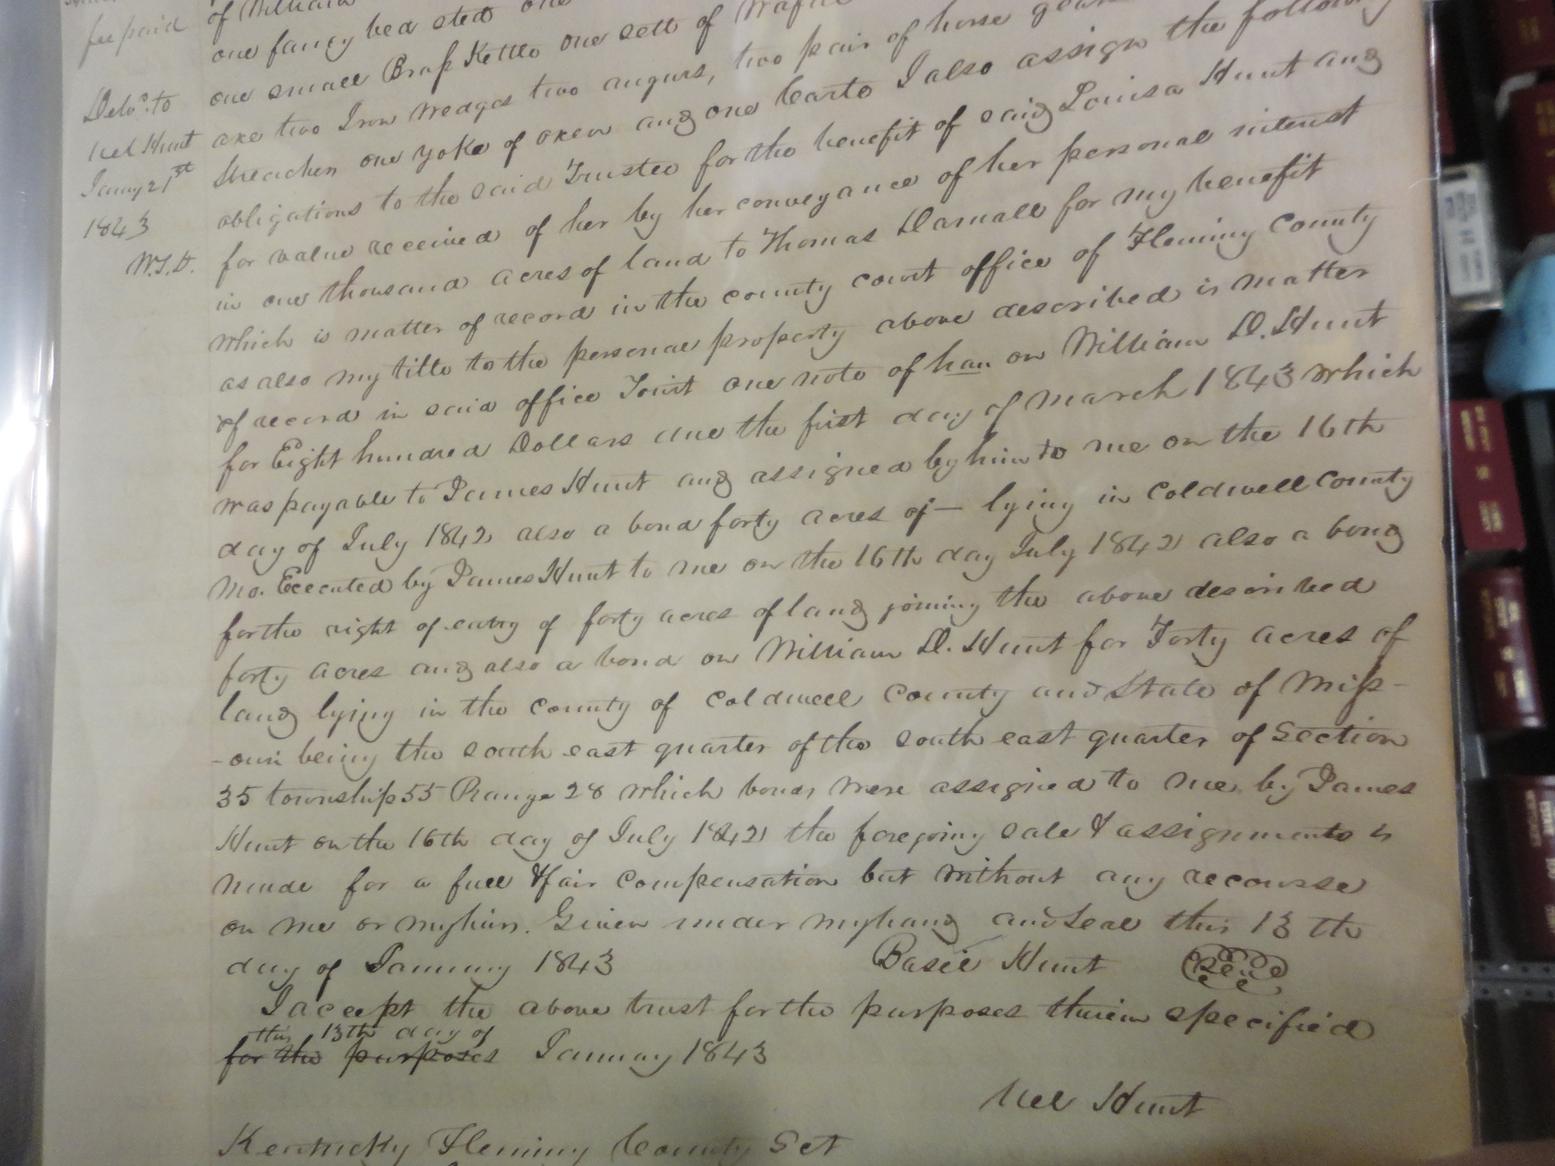 fee paid
Delv.d to
Uel Hunt
Janny 21st
1843
W.T.D.
of William
one fancy bed sted one
one small Brass Kettle one sett of
axe two Iron wedges two augurs, two pair of horse gears
Streachers one yoke of oxen and one Carte I also assign the following
obligations to the said Trustee for the benefit of said Louisa Hunt and
for value received of her by her conveyance of her personal interest
in one thousand acres of land to Thomas Darnall for my benefit
which is matter of record in the county court office of Fleming County
as also my title to the personal property above described is matter
of record in said office Toint one note of han on William D. Hunt
for Eight hundred Dollars due the first day of March 1843 which
was payable to James Hunt and assigned by him to me on the 16th
day of July 1842 also a bond forty acres of — lying in Coldwell County
Mo. Executed by James Hunt to me on the 16th day July 1842 also a bond
for the right of entry of forty acres of land joining the above described
forty acres and also a bond on William D. Hunt for Forty acres of
land lying in the county of Coldwell County and State of Miss-
-ouri being the south east quarter of the south east quarter of Section
35 township 55 Range 28 which bonds were assigned to me by James
Hunt on the 16th day of July 1842 the foregoing sale & assignments is
made for a full & fair compensation but without any recourse
on me or my hirs. Given under my hand and Seal this 13th
day of January 1843 Basil Hunt Seal
I accept the above trust for the purposes therein specified
this 13th day of
for the purposes January 1843
Uel Hunt
Kentucky Fleming County Sct